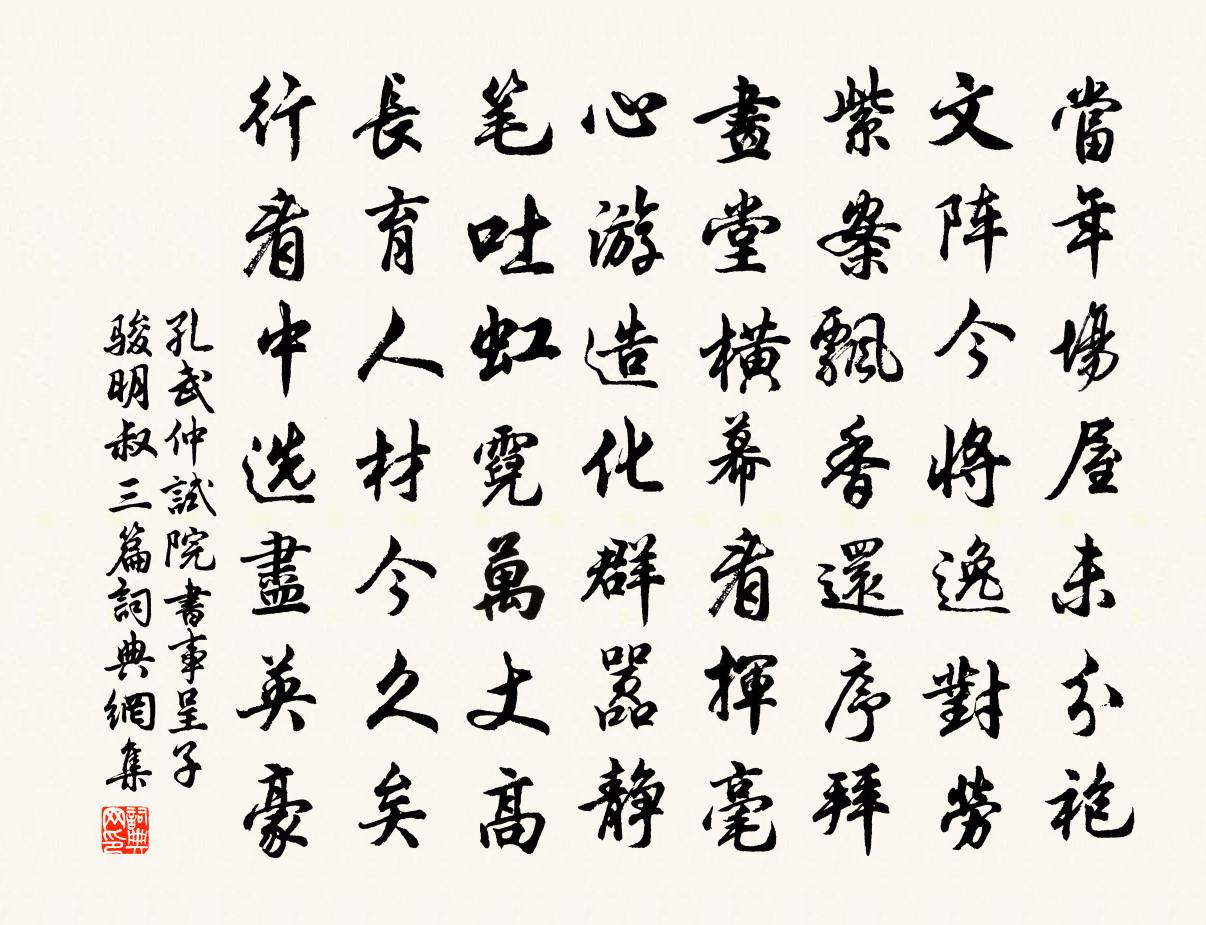 當年場屋未分袍
文阵今将逸對勞
紫案飄香還序拜
畫堂橫幕看揮毫
心游造化群嚣静
笔吐虹霓萬丈高
長育人材今久矣
行看中选盡英豪
孔武仲試院書事呈子
骏明叔三篇詞典網集
詞典网印